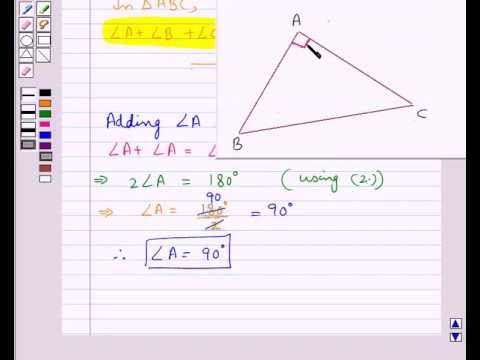 In △ABC,
∠A + ∠B + ∠C
Adding ∠A
∠A + ∠A = ∠
⇒ 2∠A = 180° (using (2.)
⇒ ∠A = 180°/2 = 90°
90
∴ ∠A = 90°
A
B
C